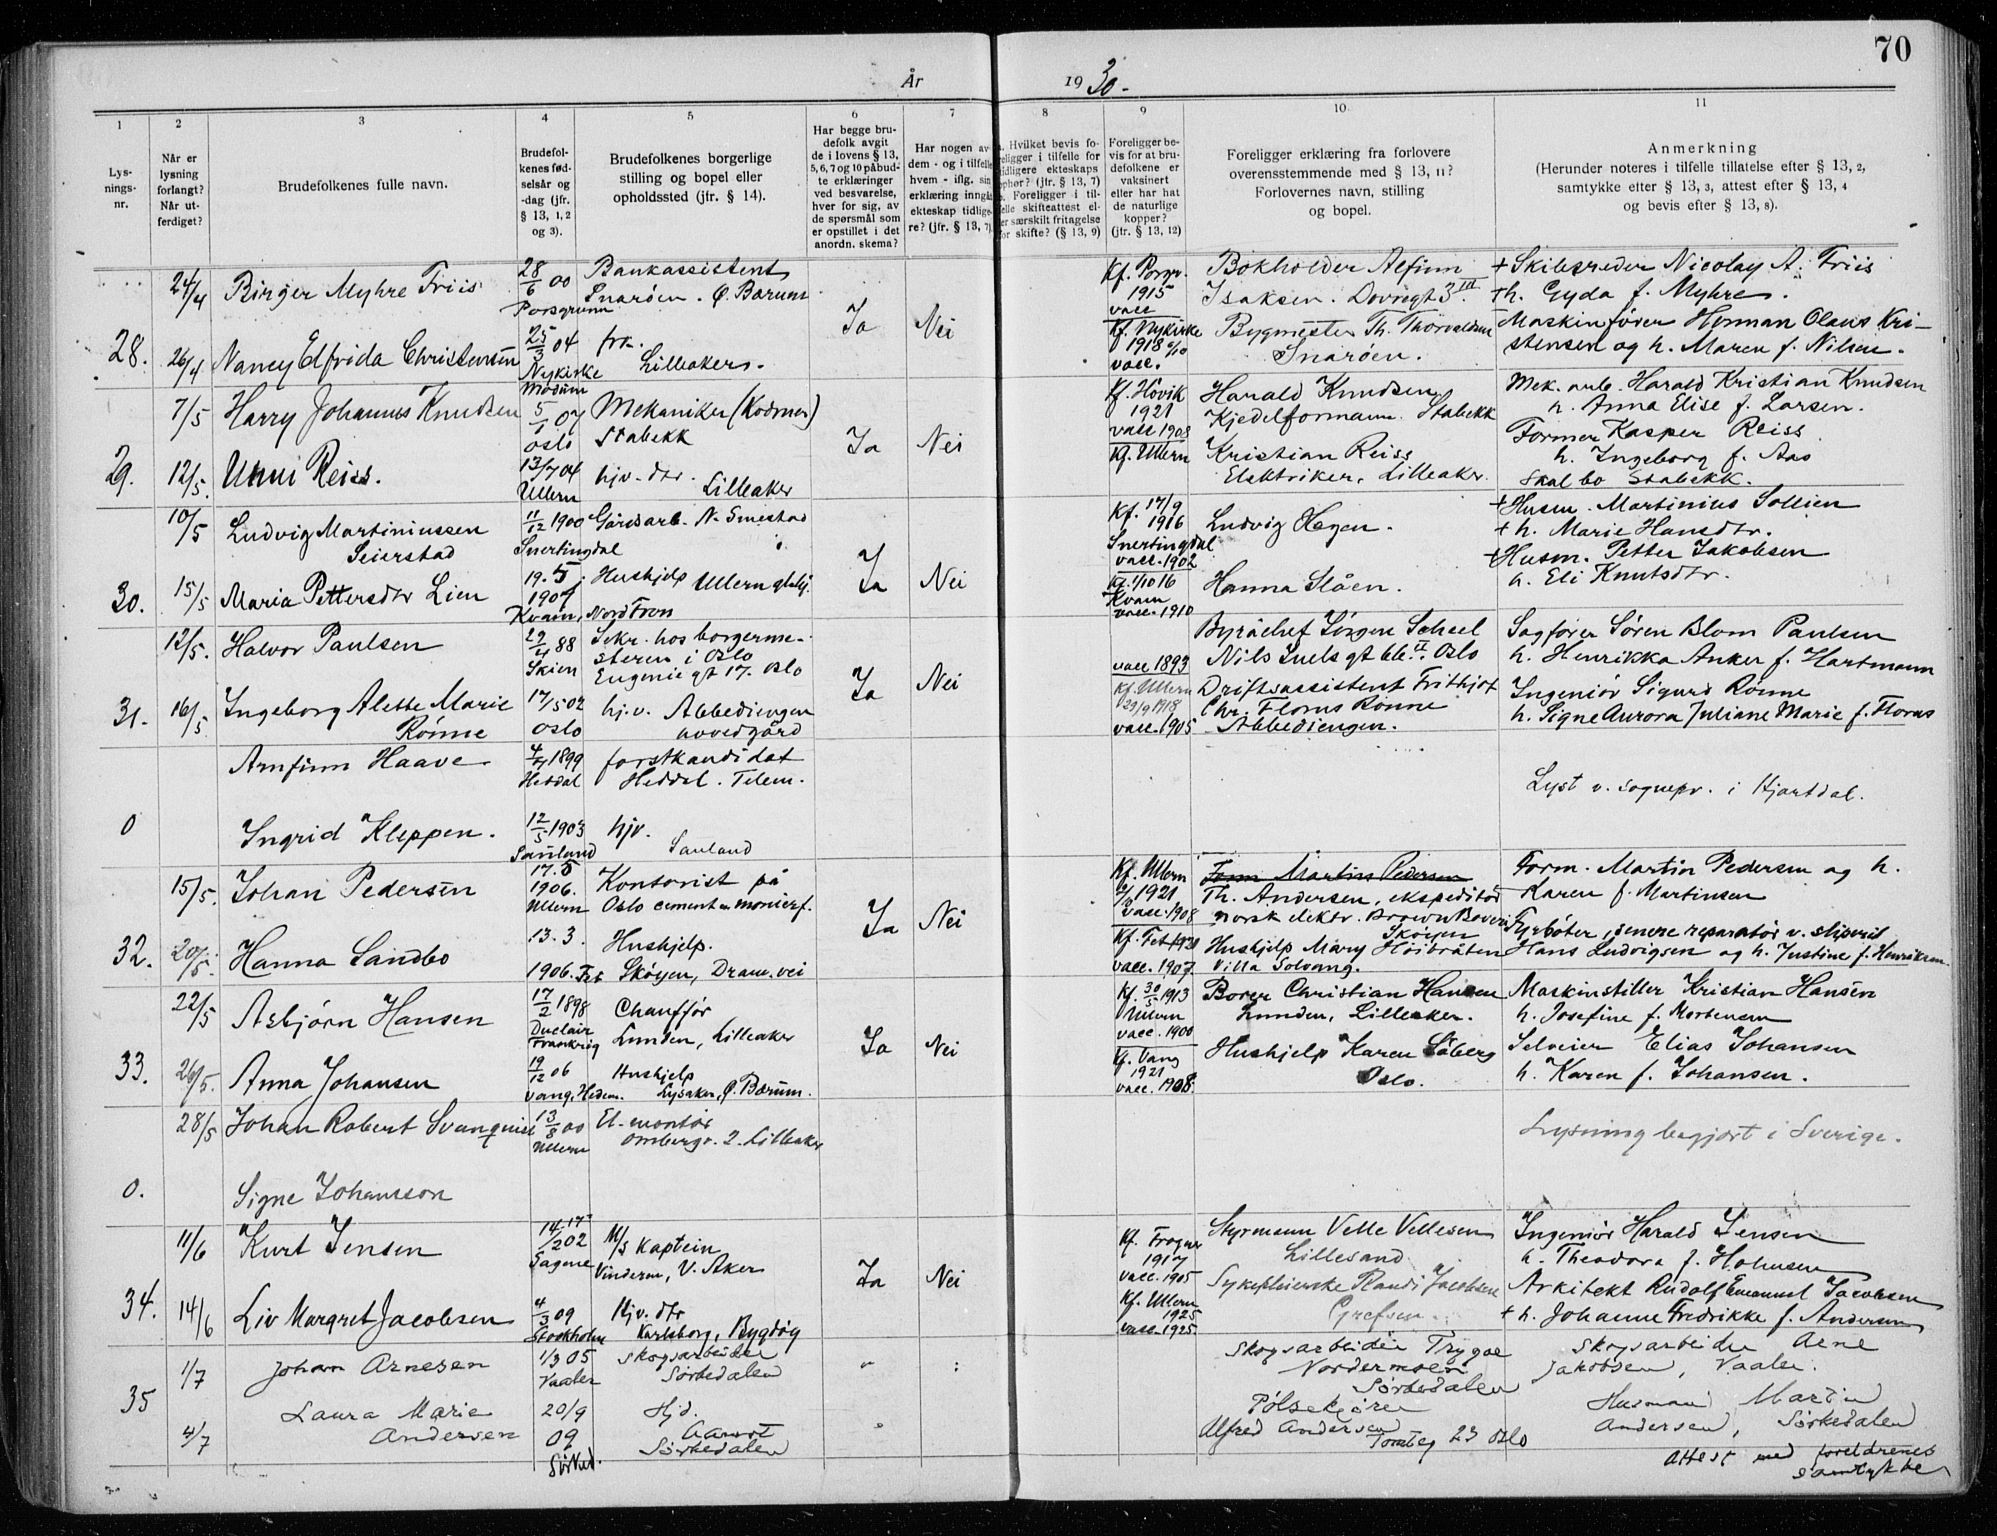 70
År 1930.
1 2 3 4 5 6 7 8 9 10 11
Lys-
nings-
nr.
Når er
lysning
forlangt?
Når ut-
ferdiget?
Brudefolkenes fulle navn.
Brudefol-
kenes fød-
selsår og
-dag (jfr.
§ 13, 1, 2
og 3).
Brudefolkenes borgerlige
stilling og bopel eller
opholdssted (jfr. § 14).
Har begge bru-
defolk avgit
de i lovens § 13,
5, 6, 7 og 10 påbud-
te erklæringer
ved besvarelse,
hver for sig, av
de spørsmål som
er opstillet i det
anordn. skema?
Har nogen av
dem - og i tilfelle
hvem - iflg. sin
erklæring inngått
ekteskap tidlige-
re? (jfr. § 13, 7).
Hvilket bevis fo-
religger i tilfelle for
tidligere ekteskaps
ophør? (jfr. § 13, 7)
Foreligger i til-
felle skifteattest el-
er særskilt fritagelse
for skifte? (§ 13, 9)
Foreligger be-
vis for at bru-
defolkene er
vaksinert
eller har hat
de naturlige
kopper?
(jfr. § 13, 12)
Foreligger erklæring fra forlovere
overensstemmende med § 13, 11?
Forlovernes navn, stilling
og bopel.
Anmerkning
(Herunder noteres i tilfelle tillatelse efter § 13, 2,
samtykke etter § 13, 3, attest efter § 13, 4
og bevis efter § 13, 8).
24/4 Birger Myhre Friis
28/6 00
Porsgrunn
Bankassistent
Snarøen. Ø. Bærum
Ja Nei
Kf. Porsgr.
1915
vacc
Bokholder Alfinn
Isaksen. Dovregt 3 III
+ Skibsreder Nicolay A. Friis
+ h. Gyda f. Myhre.
28. 26/4 Nancy Edfrida Christensen
25/3 04
Nykirke
Modum
frk.
Lilleaker.
Kf. Nykirke
1918 6/10
vacc.
Bygmester Th. Thorvaldsen
Snarøen.
Maskinfører Herman Olaus Kri-
stensen og h. Maren f. Nilsen.
7/5 Harry Johannes Knudsen
5/1 07
Oslo
Mekaniker (Kodmer)
Stabekk
Ja Nei
Kf. Høvik
1921
vacc 1908
Harald Knudsen
Kjedelformann. Stabekk
Mek. arb. Harald Kristian Knudsen
h. Anna Elise f. Larsen.
29. 12/5. Unni Reiss.
13/7 04
Ullern
hjv. dtr.
Lilleaker
Kf. Ullern
Kristian Reiss
Elektriker, Lilleaker.
Former Kasper Reiss
h. Ingeborg f. Aas
Skal bo Stabekk.
10/5 Ludvig Martiniussen
Seierstad
11/12 1900
Snertingdal
Gårdsarb. N. Smestad
Ja Nei
Kf. 17/9
1916
Snertingdal
vacc. 1902
Ludvig Hagen.
+ Husm. Martinius Sollien
+ h. Marie Hansdtr.
30. 15/5 Maria Pettersdtr Lien
19. 5.
1901
Kvam, Nord Fron
Hushjelp
Kf. 1/10 16
Kvam
vacc. 1910
Hanna Slåen.
+ Husm. Petter Jakobsen
h. Eli Knutsdtr.
12/5. Halvor Paulsen
29/4 88
Skien
Sekr. hos borgerme-
steren i Oslo
Eugenie gt 17. Oslo
Ja Nei
vacc 1893
Byråchef Jørgen Scheel
Nils Juels gt 66 II. Oslo
Sagfører Søren Blom Paulsen
h. Henrikka Anker f. Hartmann
31. 16/5 Ingeborg Alette Marie
Rønne
17/5 02
Oslo
hj. v. Abbediengen
hovedgård
Kf. Ullern
29/9 1918
vacc. 1905
Driftsassistent Frithjof
Chr. Florus Rønne
Abbediengen.
Ingeniør Sigurd Rønne
h. Signe Aurora Juliane Marie f. Florus
Arnfinn Haave
4/4 1899
Heddal
forstkandidat
Heddal. Telem.
Lyst v. sognepr. i Hjartdal.
0 Ingrid Kleppen.
12/5 1903
Sauland
hjv.
Sauland
15/5. Johan Pedersen
17. 5
1906.
Ullern
Kontorist på
Oslo cement en monierf.
Ja Nei
Kf. Ullern
1921
vacc. 1908
Form Martin Pedersen
Th. Andersen, ekspeditør
norsk elektr. Brown Boveri
Skøyen
Form. Martin Pedersen og h.
Karen f. Martinsen
32. 20/5. Hanna Sandbo
13. 3.
1906. Fet
Hushjelp.
Skøyen, Dram. vei
Kf. Fet 1921
vacc. 1907
Hushjelp Mary Høibråten
Villa Solvang.
Fyrbøter, senere reparatør v. sliperi
Hans Ludvigsen og h. Justine f. Henriksen
22/5 Asbjørn Hansen
17/2 1898
Duclair
Frankrig
Chauffør
Lunden, Lilleaker
Ja Nei
Kf. 30/5 1913
Ullern
vacc. 1900
Borer Christian Hansen
Lunden, Lilleaker.
Maskinstiller Kristian Hansen
h. Josefine f. Mortensen
33. 26/5. Anna Johansen
19/12 06
Vang, Hedem.
Hushjelp
Lysaker, Ø. Bærum.
Kf. Vang
1921
vacc. 1908.
Hushjelp Karen Søberg
Oslo.
Selveier Elias Johansen
h. Karen f. Johansen.
28/5 Johan Robert Svanquist
13/8 00
Ullern
El. montør
Ombergv. 2. Lilleaker
Lysning begjært i Sverige.
0. Signe Johansson
11/6 Kurt Jensen
14/2 02
Sagene
M/S Kaptein
Vinderen, V. Aker
Ja Nei
Kf. Frogner
1917
vacc. 1905
Styrmann Velle Vellesen
Lillesand
Ingeniør Harald Jensen
h. Theodora f. Hohnsen
34. 14/6 Liv Margret Jacobsen
4/3 09
Stockholm
Hjv. dtr
Karlsborg, Bygdøy
Kf. Ullern
1925
vacc. 1925.
Sykepleierske Randi Jacobsen
Grefsen.
Arkitekt Rudolf Emanuel Jacobsen
+ h. Johanne Fredrikke f. Andersen
1/7 Johan Arnesen
1/3 05
Vaaler
Skogsarbeider
Sørkedalen
Skogsarbeider Trygve
Nordermoen
Sørkedalen
Skogsarbeider Arne
Jakobsen, Vaaler.
35 4/7 Laura Marie
Andersen
20/9
09
Sørked.
Hjd.
Sørkedalen
Pølsekjører
Alfred Andersen
Tomteg 23 Oslo
Husmand Martin
Andersen, Sørkedalen
Attest med foreldrenes
samtykke